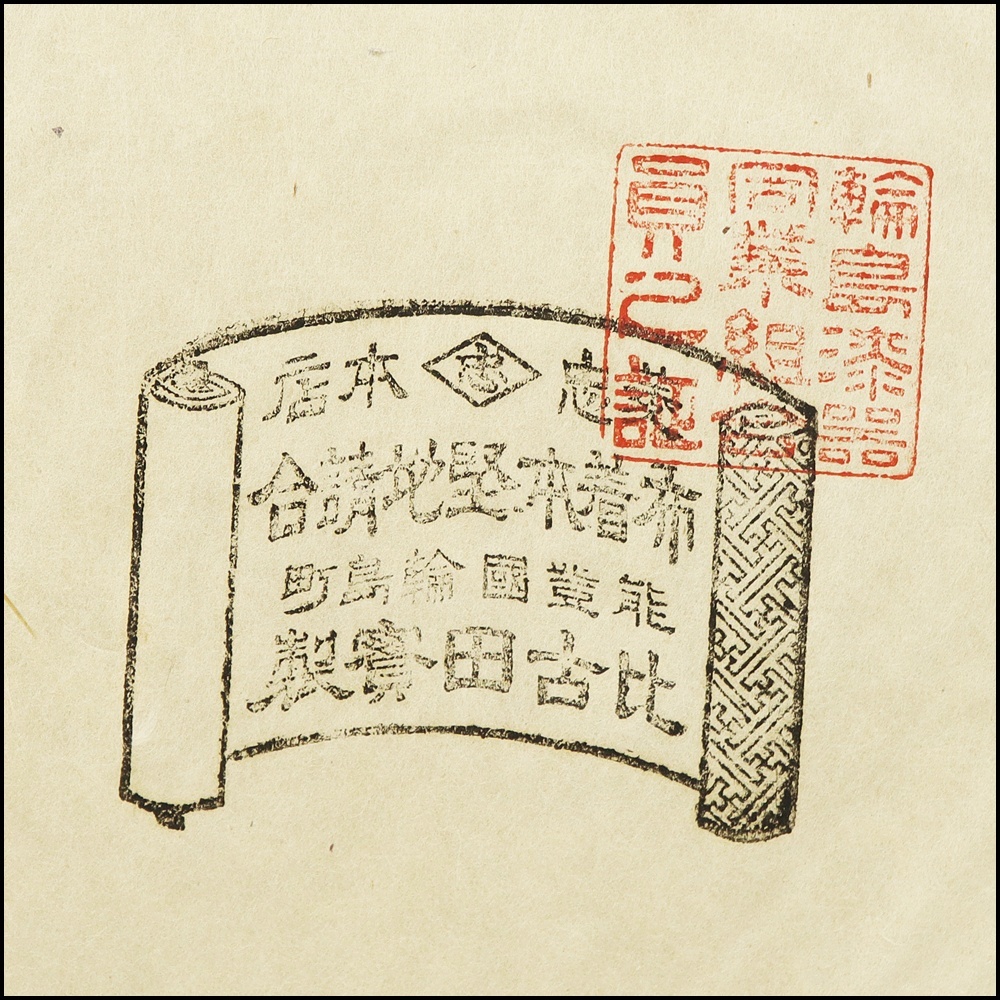 輪島漆器
同業組合
員之記
菱忠 忠 本店
布着本堅地請合
能登國輪島町
比古田實製